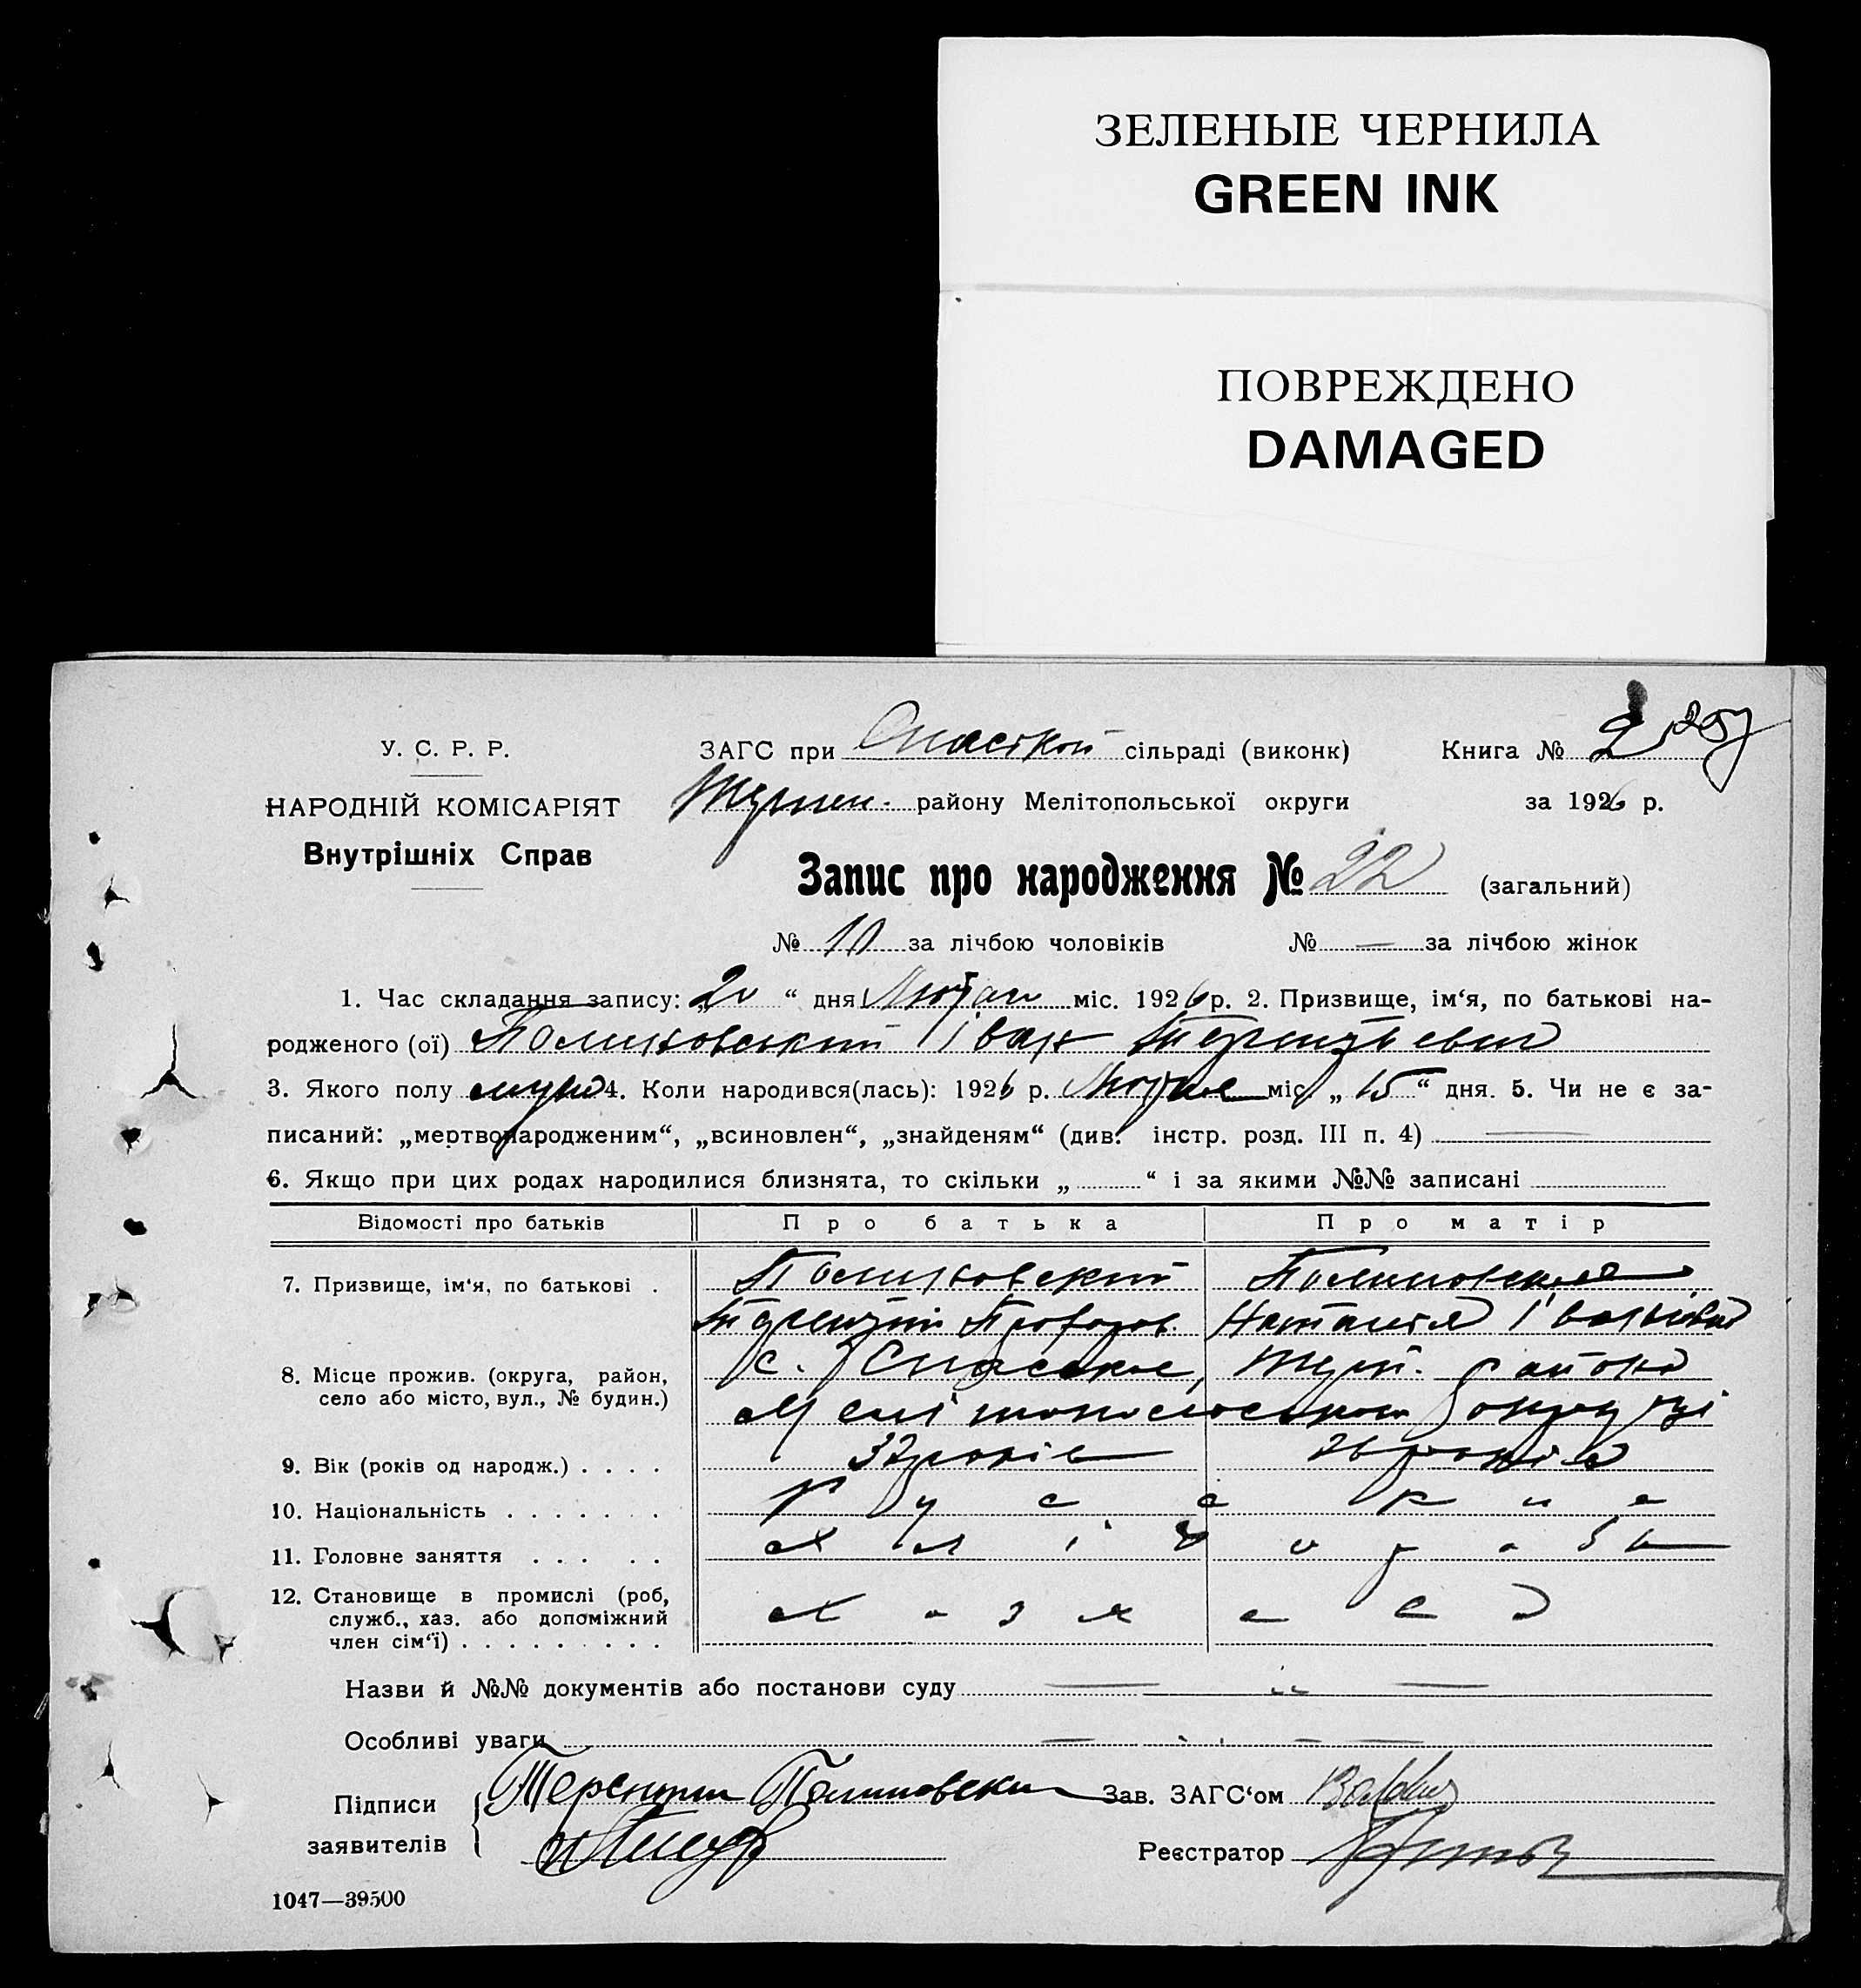 ЗЕЛЕНЫЕ ЧЕРНИЛА
GREEN INK
ПОВРЕЖДЕНО
DAMAGED
У. С. Р. Р.
НАРОДНІЙ КОМІСАРІЯТ
Внутрішніх Справ
ЗАГС при Спаській сільраді (виконк) Книга № 2
района Мелітопольської округи за 1926 р.
Запис про народження № 22 (загальний)
№ 10 за лічбою чоловіків № — за лічбою жінок
1. Час складання запису: „20“ дня Лютого міс. 1926 р. 2. Призвище, ім‘я, по батькові на-
родженого (ої) Полиновский Іван
3. Якого полу муж 4. Коли народився(лась): 1926 р. міс. „15“ дня. 5. Чи не є за-
писаний: „мертвонародженим“, „всиновлен“, „знайденям“ (див. інстр. розд. III п. 4) —
6. Якщо при цих родах народилися близнята, то скільки „ “ і за якими №№ записані
Відомості про батьків Про батька Про матір
7. Призвище, ім‘я, по батькові . Полиновский Полиновская
Наталія Іванівна
8. Місце прожив. (округа, район, село або місто, вул., № будин.) с. Спаське, района
Мелітопольської округи
9. Вік (років од народж.) . . . . 32 років 26 років
10. Національність . . . . . . . русские
11. Головне заняття . . . . . хлібороби
12. Становище в промислі (роб,
служб., хаз. або допоміжний
член сім‘ї) . . . . . . . . .
Назви й №№ документів або постанови суду —
Особливі уваги —
Підписи
заявителів
Терентий Полиновски
Зав. ЗАГС‘ом
Реєстратор
1047—39500